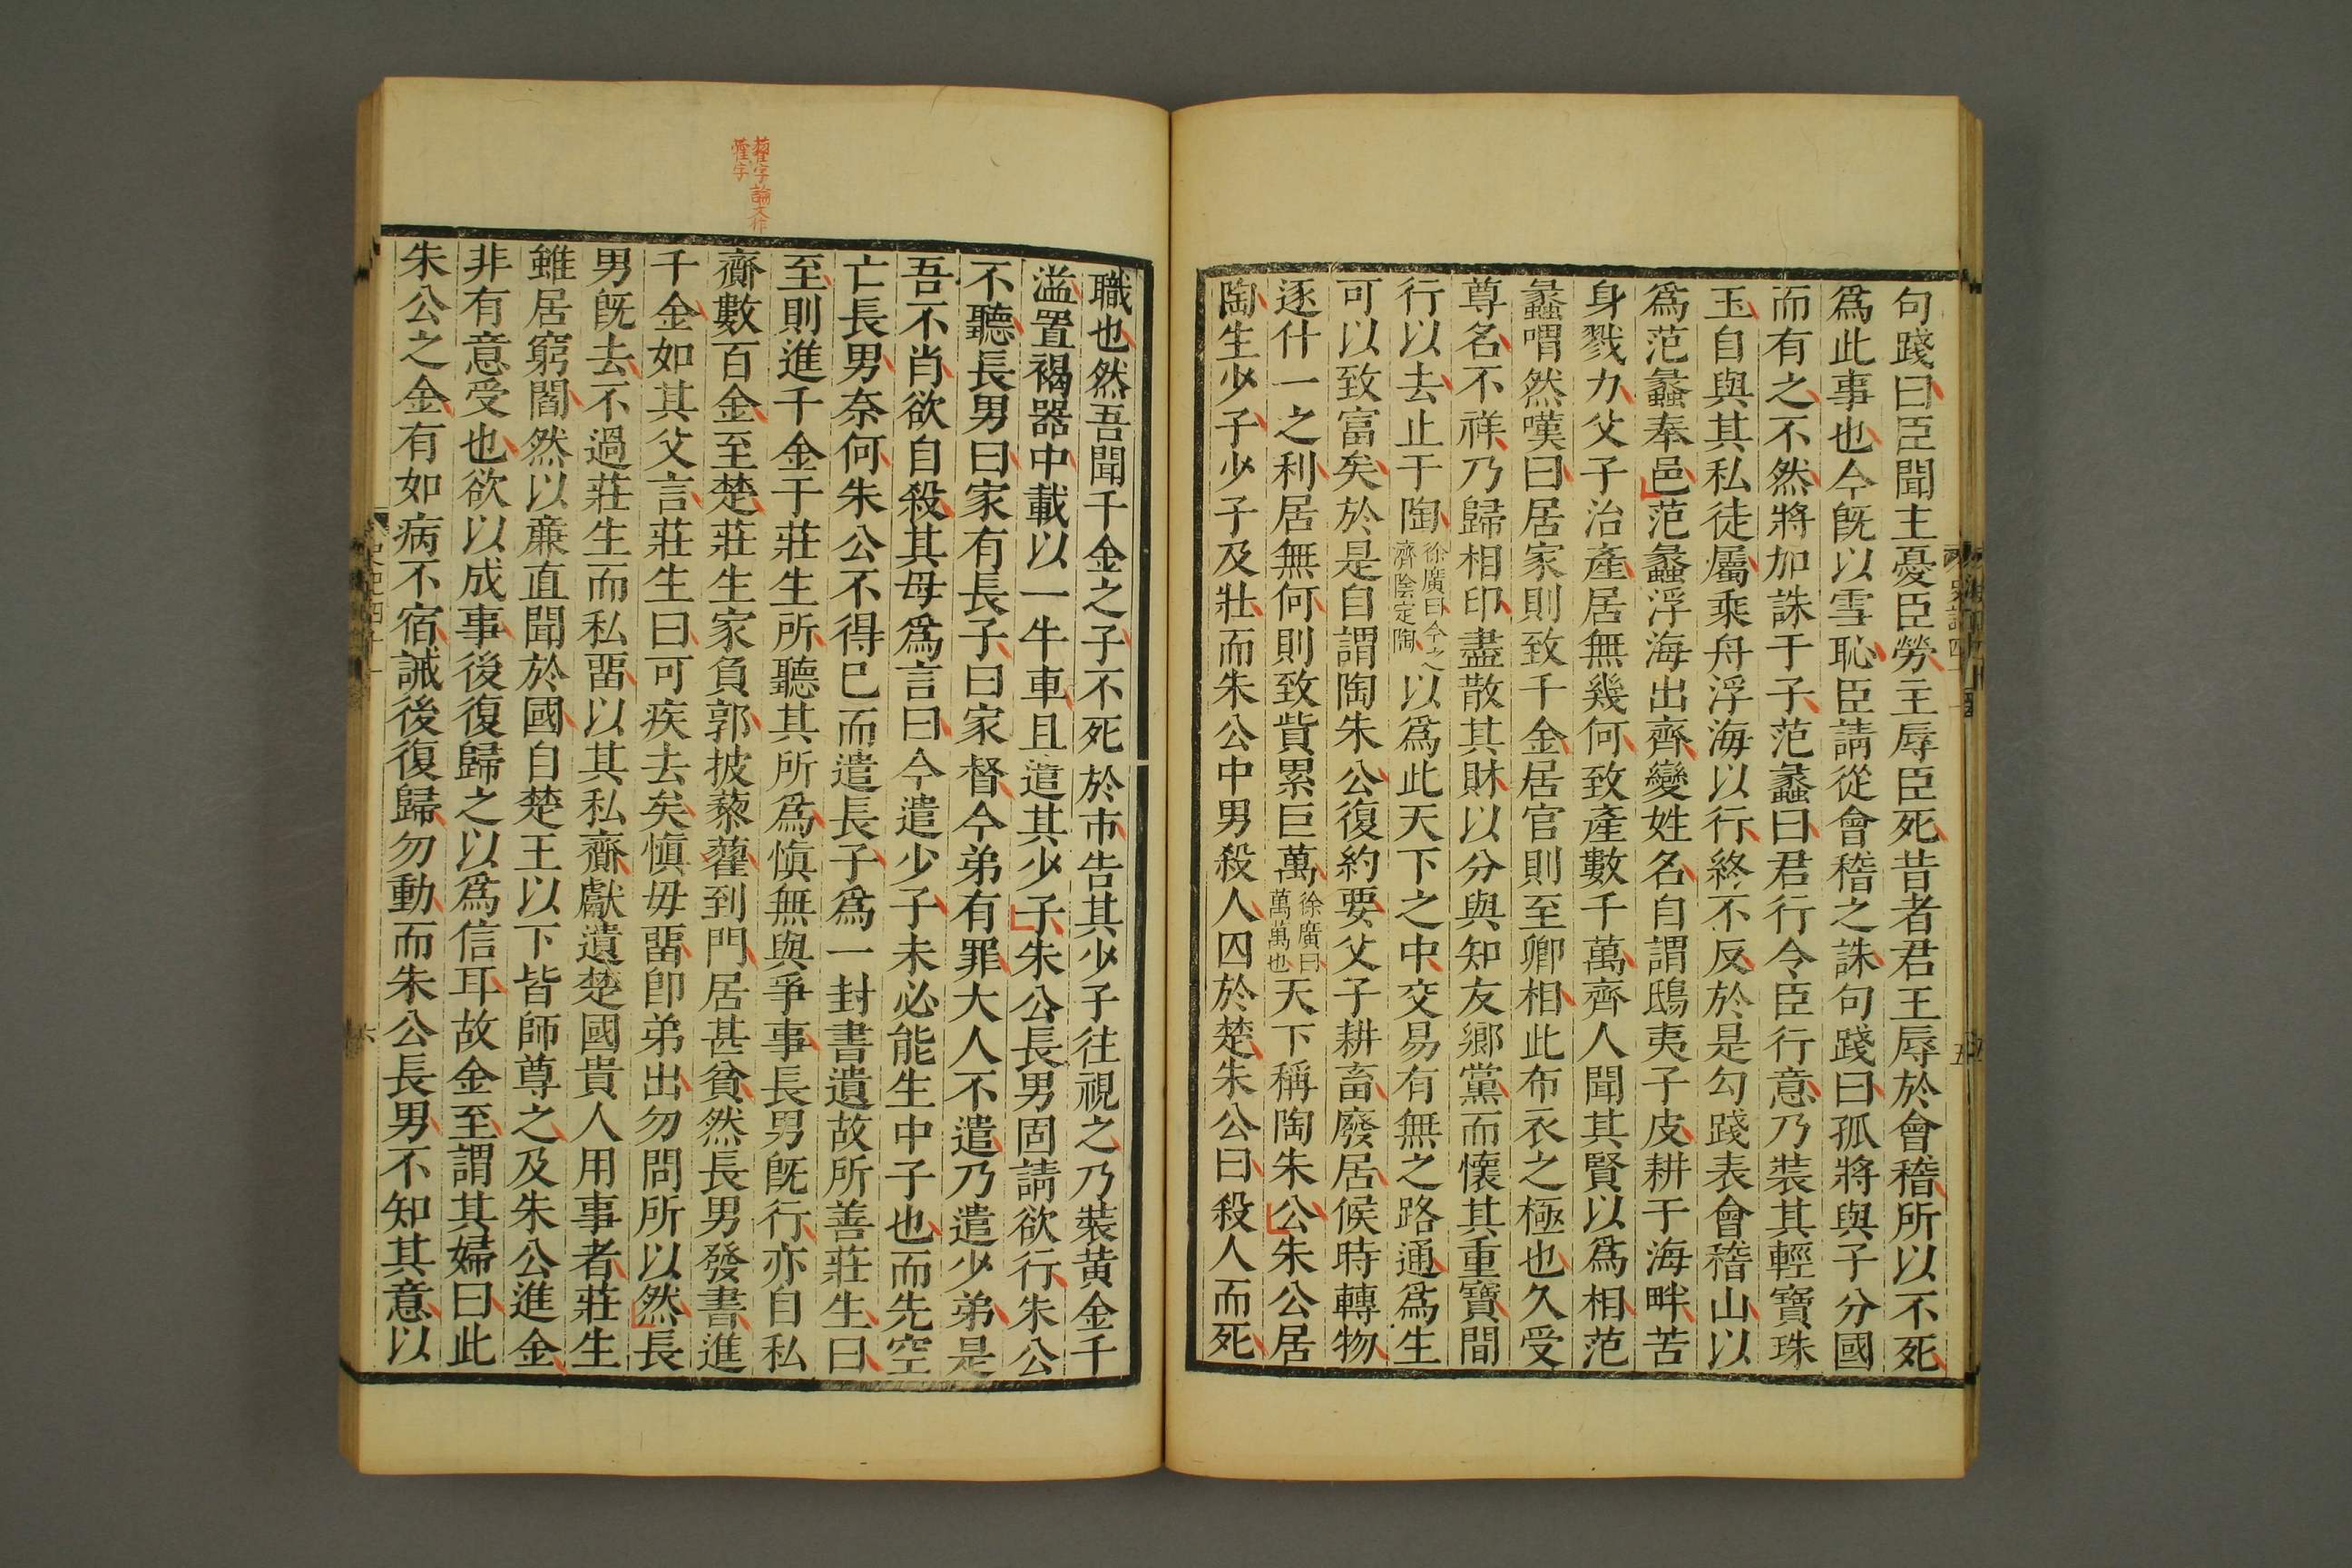 句踐曰臣聞主憂臣勞主辱臣死昔者君王辱於會稽所以不死
爲此事也今既以雪恥臣請從會稽之誅句踐曰孤將與子分國
而有之不然將加誅于子范蠡曰君行令臣行意乃裝其輕寶珠
玉自與其私徒屬乘舟浮海以行終不反於是勾踐表會稽山以
爲范蠡奉邑范蠡浮海出齊變姓名自謂鴟夷子皮耕于海畔苦
身戮力父子治產居無幾何致產數千萬齊人聞其賢以爲相范
蠡喟然嘆曰居家則致千金居官則至卿相此布衣之極也久受
尊名不祥乃歸相印盡散其財以分與知友鄉黨而懷其重寶間
行以去止于陶徐廣曰今之濟陰定陶以爲此天下之中交易有無之路通爲生
可以致富矣於是自謂陶朱公復約要父子耕畜廢居候時轉物
逐什一之利居無何則致貲累巨萬徐廣曰萬萬也天下稱陶朱公朱公居
陶生少子少子及壯而朱公中男殺人囚於楚朱公曰殺人而死
職也然吾聞千金之子不死於市告其少子往視之乃裝黃金千
溢置褐器中載以一牛車且遣其少子朱公長男固請欲行朱公
不聽長男曰家有長子曰家督今弟有罪大人不遣乃遣少弟是
吾不肖欲自殺其母爲言曰今遣少子未必能生中子也而先空
亡長男奈何朱公不得已而遣長子爲一封書遺故所善莊生曰
至則進千金于莊生所聽其所爲愼無與爭事長男既行亦自私
齎數百金至楚莊生家負郭披藜藋到門居甚貧然長男發書進
千金如其父言莊生曰可疾去矣愼毋畱卽弟出勿問所以然長
男既去不過莊生而私畱以其私齎獻遺楚國貴人用事者莊生
雖居窮閻然以廉直聞於國自楚王以下皆師尊之及朱公進金
非有意受也欲以成事後復歸之以爲信耳故金至謂其婦曰此
朱公之金有如病不宿誡後復歸勿動而朱公長男不知其意以
藋字論文作
藿字
五
六